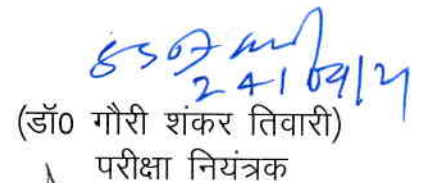 24/09/21
(डॉ0 गौरी शंकर तिवारी)
परीक्षा नियंत्रक